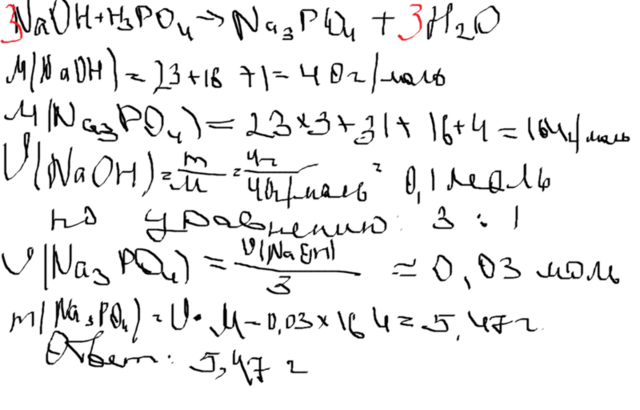 3NaOH+H₃PO₄→Na₃PO₄+3H₂O
M(NaOH)=23+16+1=40г/моль
M(Na₃PO₄)=23×3+31+16+4=164г/моль
υ(NaOH)=m/M=4г/40г/моль=0,1моль
по уравнению: 3:1
υ(Na₃PO₄)=υ(NaOH)/3≈0,03моль
m(Na₃PO₄)=υ·M-0,03×164=5,47г
Ответ: 5,47г